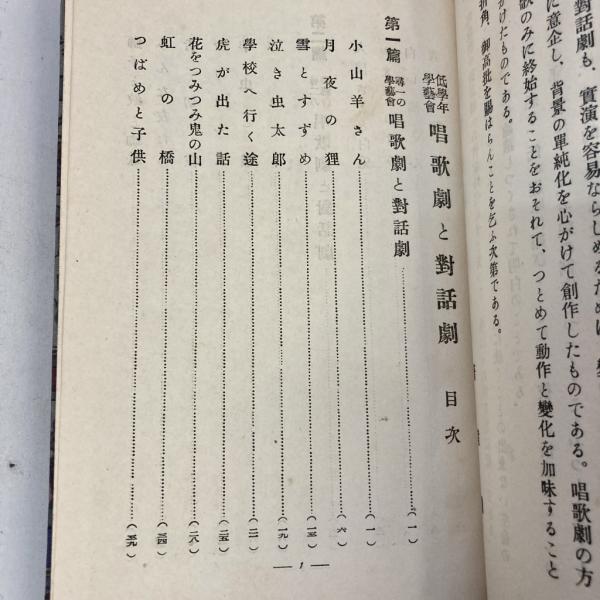 對話劇も、實演を容易ならしめるために、
に意企し、背景の單純化を心がけて創作したものである。唱歌劇の方
歌のみに終始することをおそれて、つとめて動作と變化を加味すること
がけたものである。
折角、御高批を賜はらんことを乞ふ次第である。
低學年學藝會 唱歌劇と對話劇 目次
第一篇 尋一の學藝會 唱歌劇と對話劇……(一)
小山羊さん……(一)
月夜の狸……(六)
雪とすずめ……(一三)
泣き虫太郎……(一九)
學校へ行く途……(二一)
虎が出た話……(二五)
花をつみつみ鬼の山……(二八)
虹の橋……(三四)
つばめと子供……(三九)
— 1 —